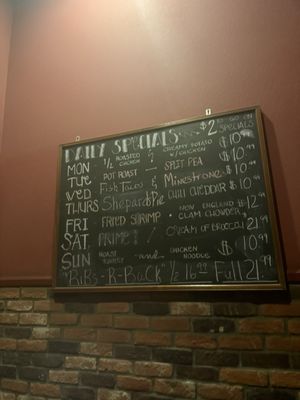 DAILY SPECIALS $2 TO GO ON SPECIALS
MON ½ ROASTED CHICKEN ? CREAMY POTATO W/ CHICKEN $10.99
TUE POT ROAST - SPLIT PEA $10.99
WED Fish Tacos & Minestrone $10.99
THURS Shepards Pie CHILI CHEDDAR $10.99
FRI FRIED SHRIMP • NEW ENGLAND CLAM CHOWDER $12.99
SAT PRIME CREAM OF BROCCOLI 21.99
SUN ROAST TURKEY and CHICKEN NOODLE $10.99
"RiBS-R-BacK ½ 16.99 Full 21.99